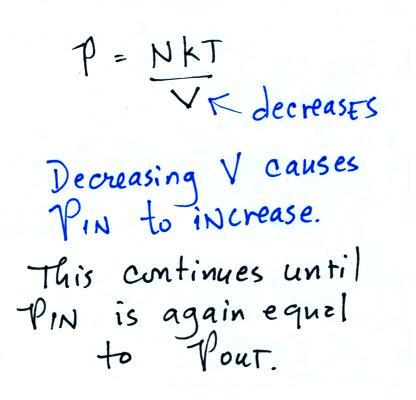 P = NkT
V ← decreases
Decreasing V causes
PIN to increase.
This continues until
PIN is again equal
to POUT.